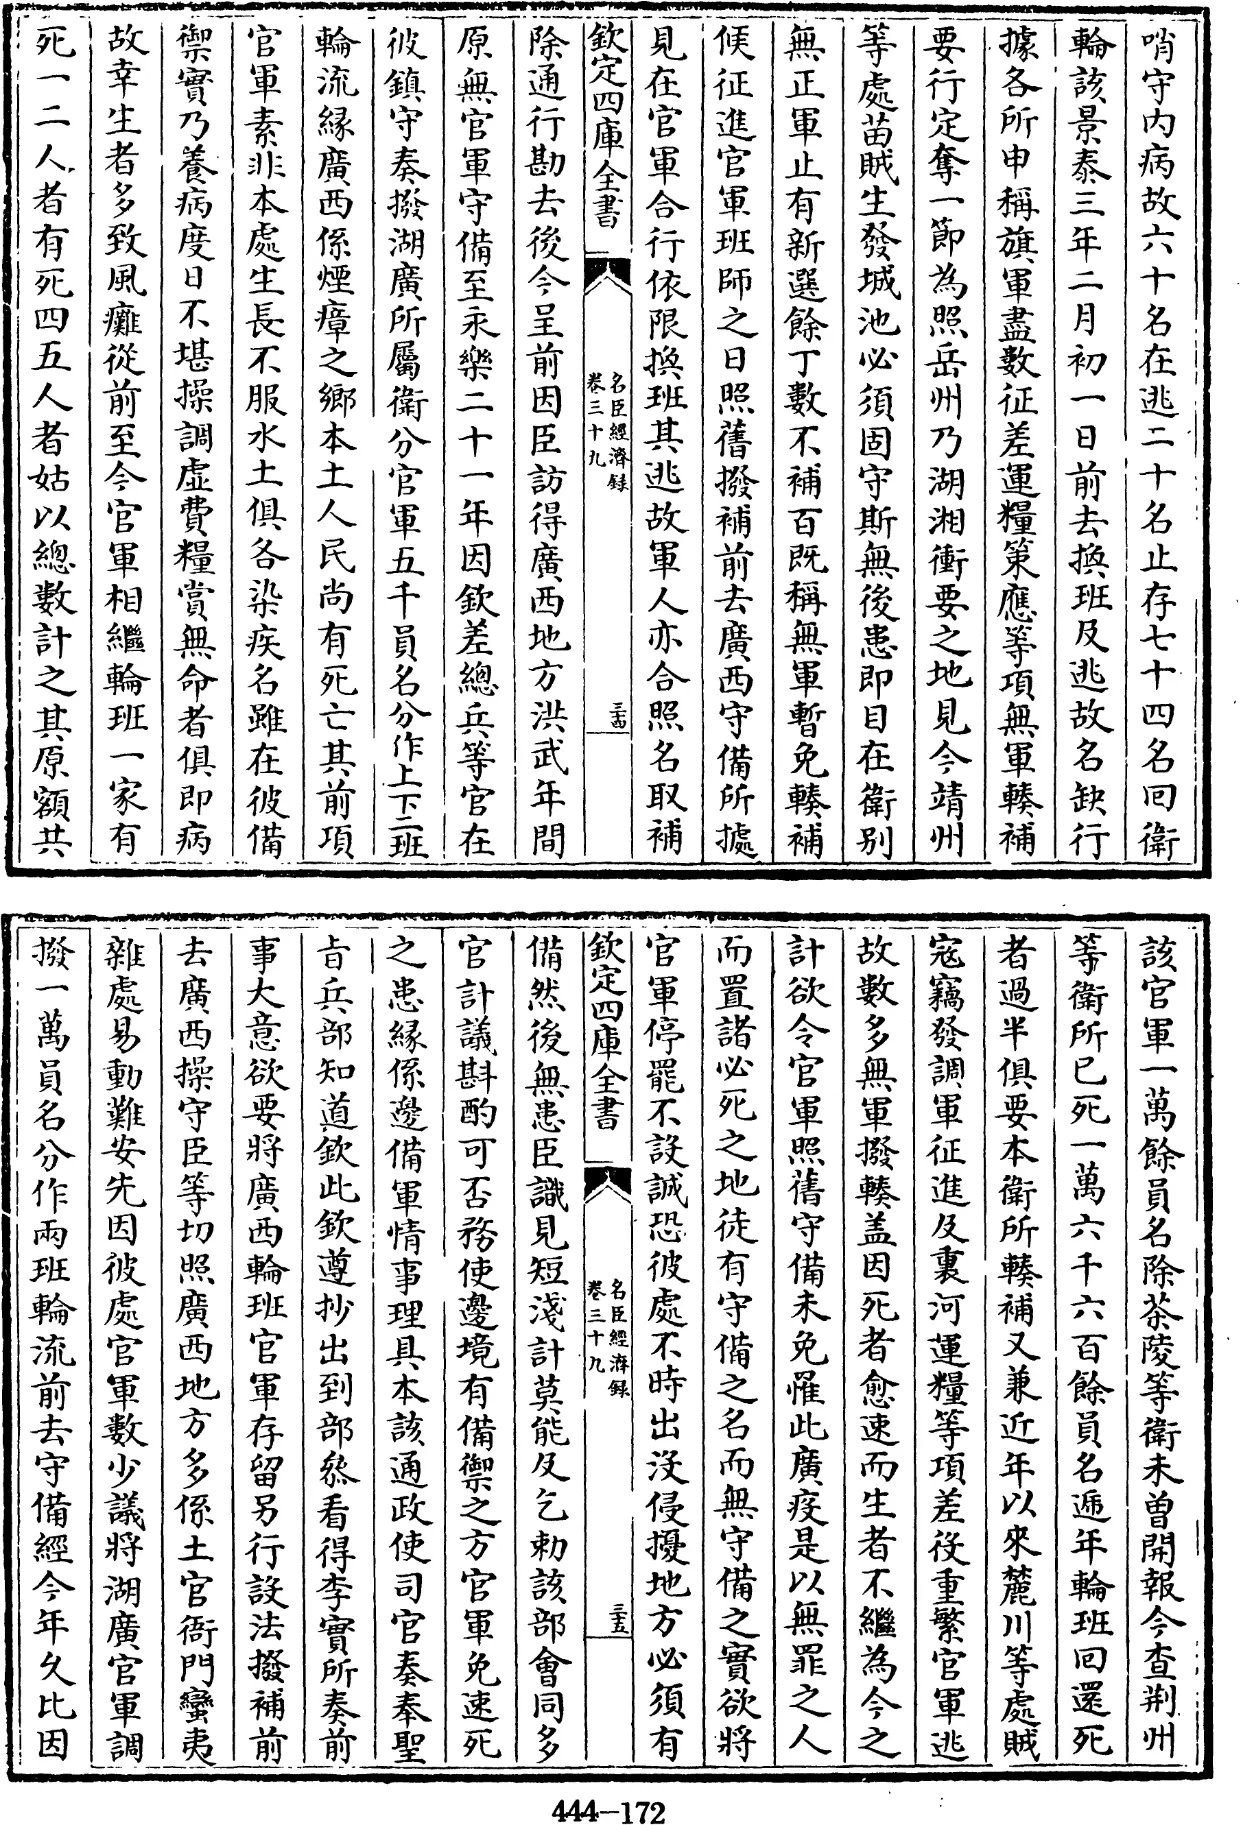 哨守内病故六十名在逃二十名止存七十四名囘衛
輪該景泰三年二月初一日前去換班及逃故名缺行
據各所申稱旗軍盡數征差運糧策應等項無軍輳補
要行定奪一節為照岳州乃湖湘衝要之地見今靖州
等處苗賊生發城池必須固守斯無後患即目在衛别
無正軍止有新選餘丁數不補百既稱無軍暫免輳補
候征進官軍班師之日照舊撥補前去廣西守備所據
見在官軍合行依限換班其逃故軍人亦合照名取補
欽定四庫全書
名臣經濟録
卷三十九
三十四
除通行勘去後今呈前因臣訪得廣西地方洪武年間
原無官軍守備至永樂二十一年因欽差總兵等官在
彼鎮守奏撥湖廣所屬衛分官軍五千員名分作上下二班
輪流縁廣西係煙瘴之鄉本土人民尚有死亡其前項
官軍素非本處生長不服水土俱各染疾名雖在彼備
禦實乃養病度日不堪操調虚費糧賞無命者俱即病
故幸生者多致風癱從前至今官軍相繼輪班一家有
死一二人者有死四五人者姑以總數計之其原額共
該官軍一萬餘員名除茶陵等衛未曾開報今查荆州
等衛所已死一萬六千六百餘員名逓年輪班囘還死
者過半俱要本衛所輳補又兼近年以來麓川等處賊
冦竊發調軍征進及裏河運糧等項差役重繁官軍逃
故數多無軍撥輳盖因死者愈速而生者不繼為今之
計欲令官軍照舊守備未免罹此廣疫是以無罪之人
而置諸必死之地徒有守備之名而無守備之實欲將
官軍停罷不設誠恐彼處不時出没侵擾地方必須有
欽定四庫全書
名臣經濟録
卷三十九
三十五
備然後無患臣識見短淺計莫能及乞勅該部會同多
官計議斟酌可否務使邊境有備禦之方官軍免速死
之患縁係邊備軍情事理具本該通政使司官奏奉聖
旨兵部知道欽此欽遵抄出到部叅看得李實所奏前
事大意欲要將廣西輪班官軍存留另行設法撥補前
去廣西操守臣等切照廣西地方多係土官衙門蠻夷
雜處易動難安先因彼處官軍數少議將湖廣官軍調
撥一萬員名分作兩班輪流前去守備經今年久比因
444-172